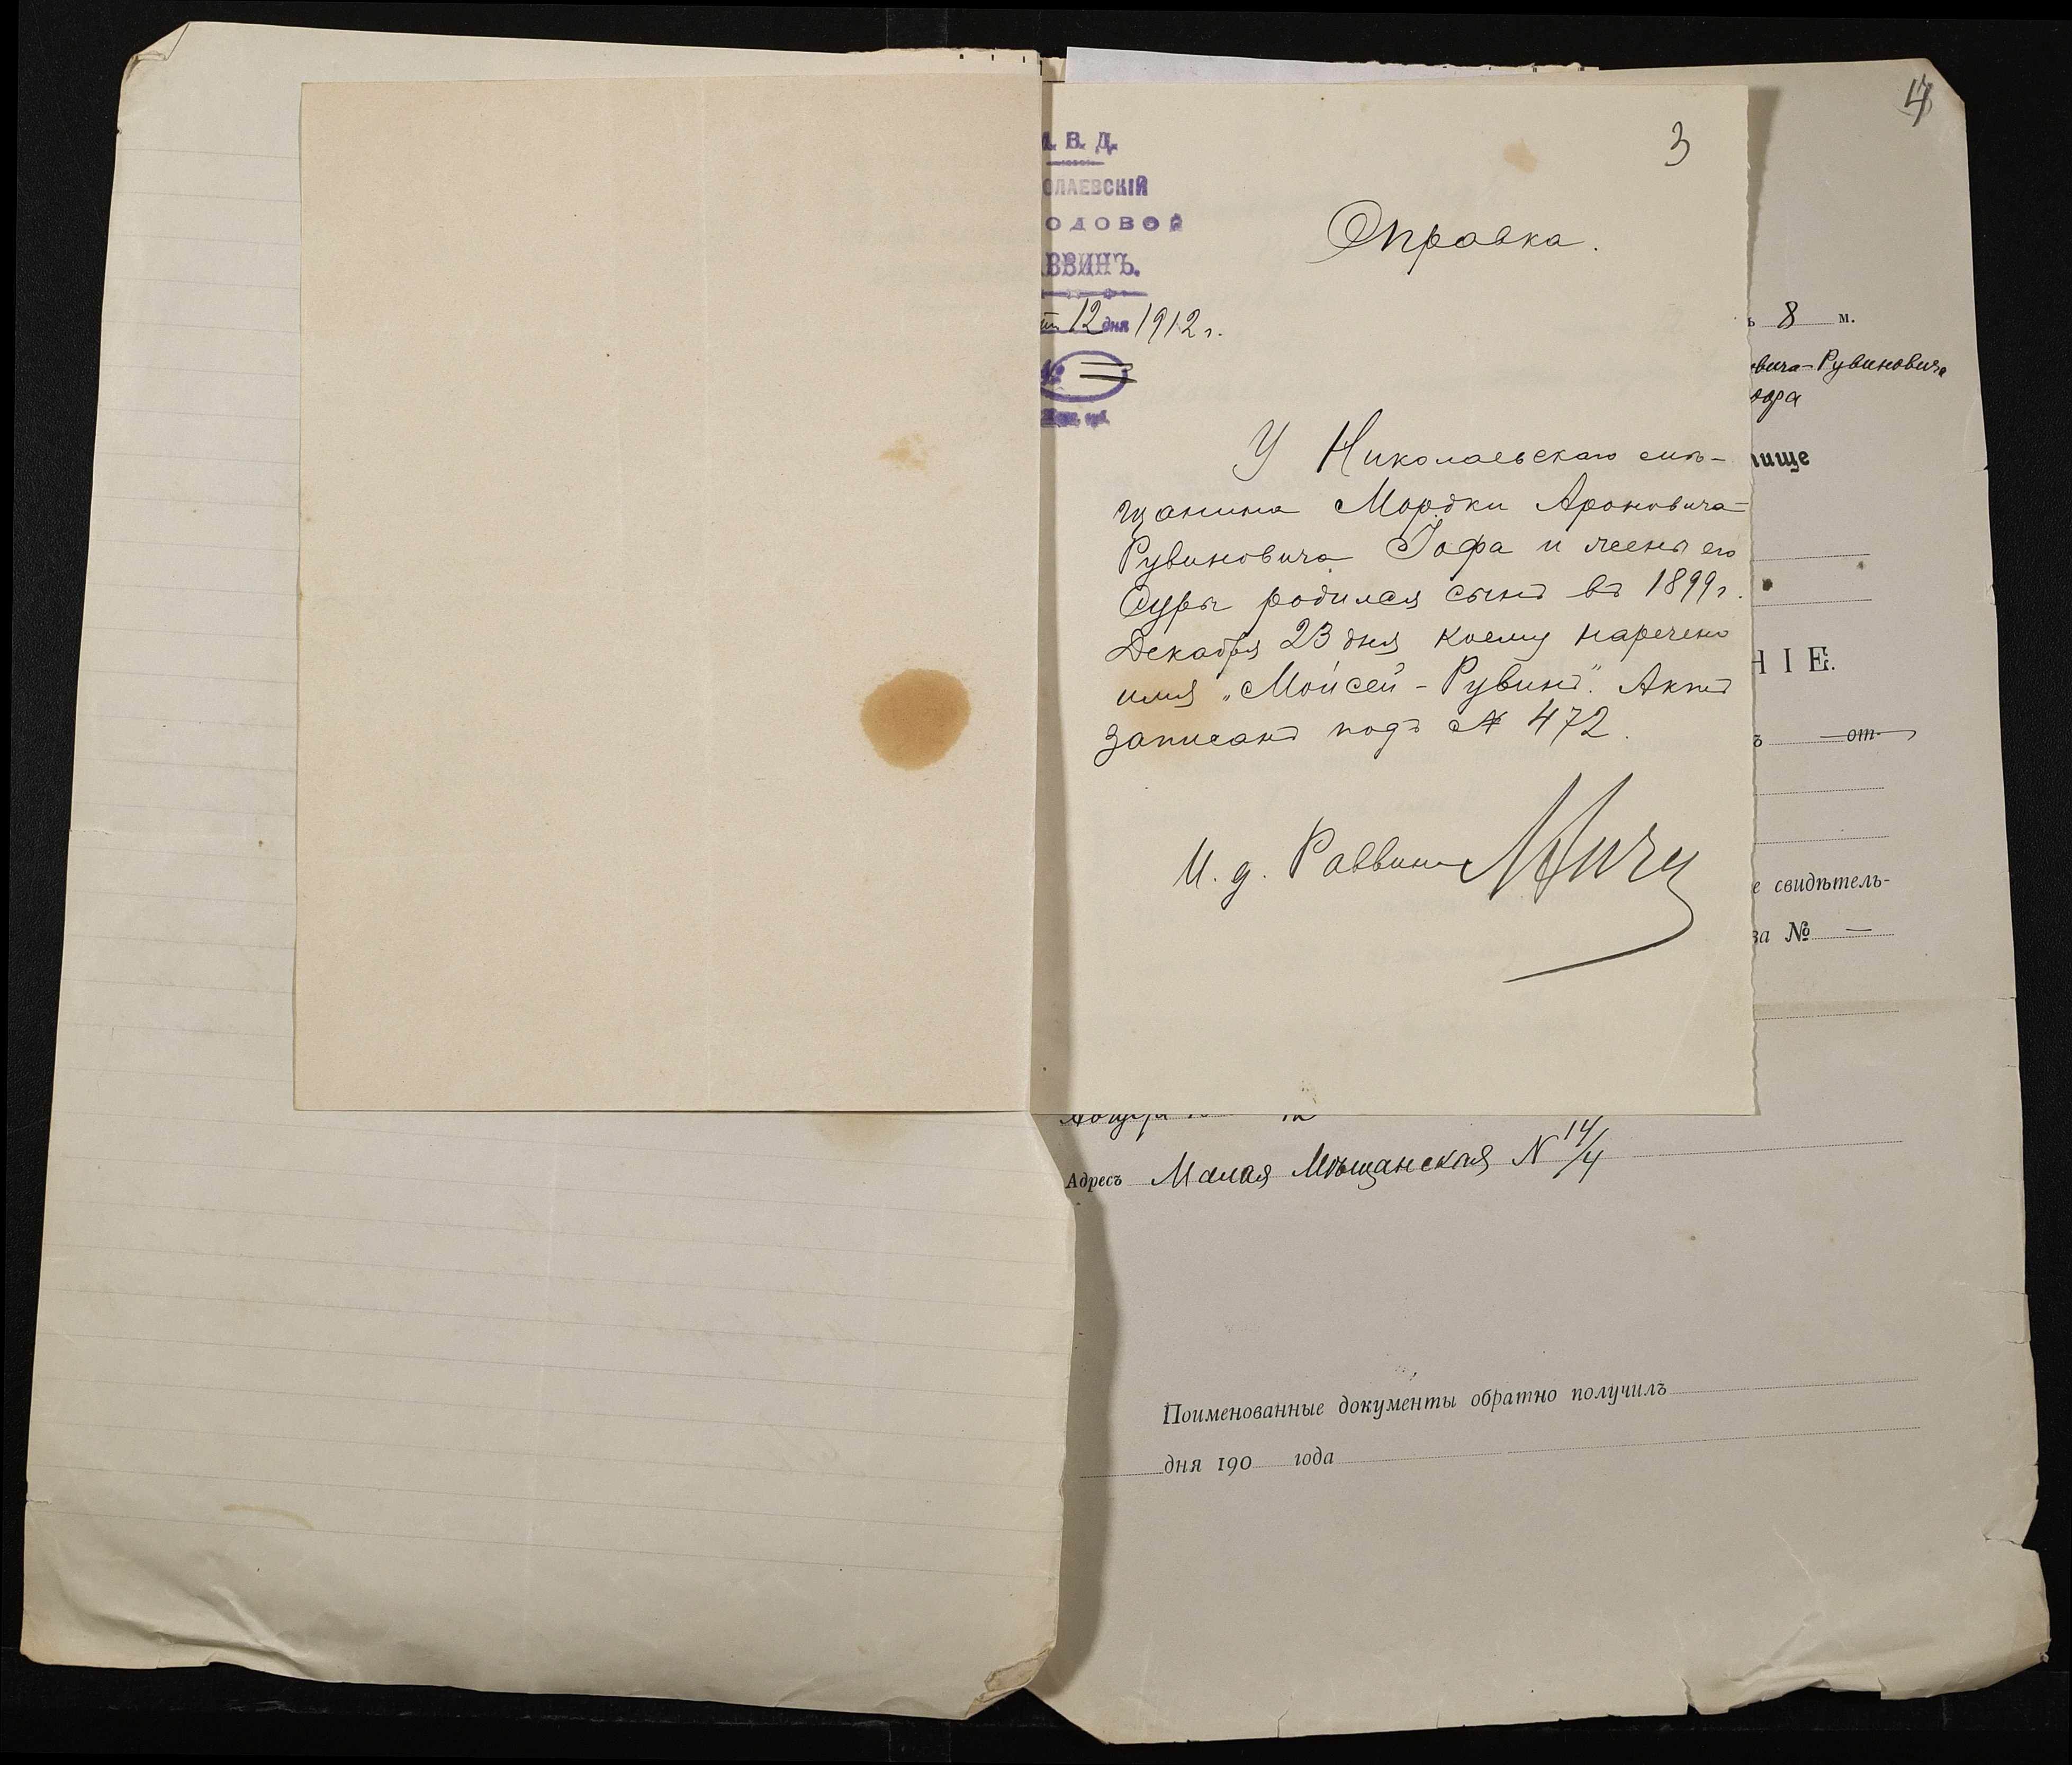 4
3
. В. Д.
ОЛАЕВСКІЙ
ОДОВОЙ
ВВИНЪ.
12 дня 1912 г.
№
Справка.
У Николаевскаго мѣ-
щанина Мордки Ароновича-
Рувиновича Гофа и жены его
Суры родился сынъ въ 1899 г.
Декабря 23 дня коему наречено
имя „Моисей-Рувинъ". Актъ
записанъ подъ № 472.
И. д. Раввина
ъ 8 м.
овича-Рувиновича
НІЕ.
от
е свидѣтель-
за № —
Адресъ Малая Мѣщанская N 14/4
Поименованные документы обратно получилъ
дня 190 года